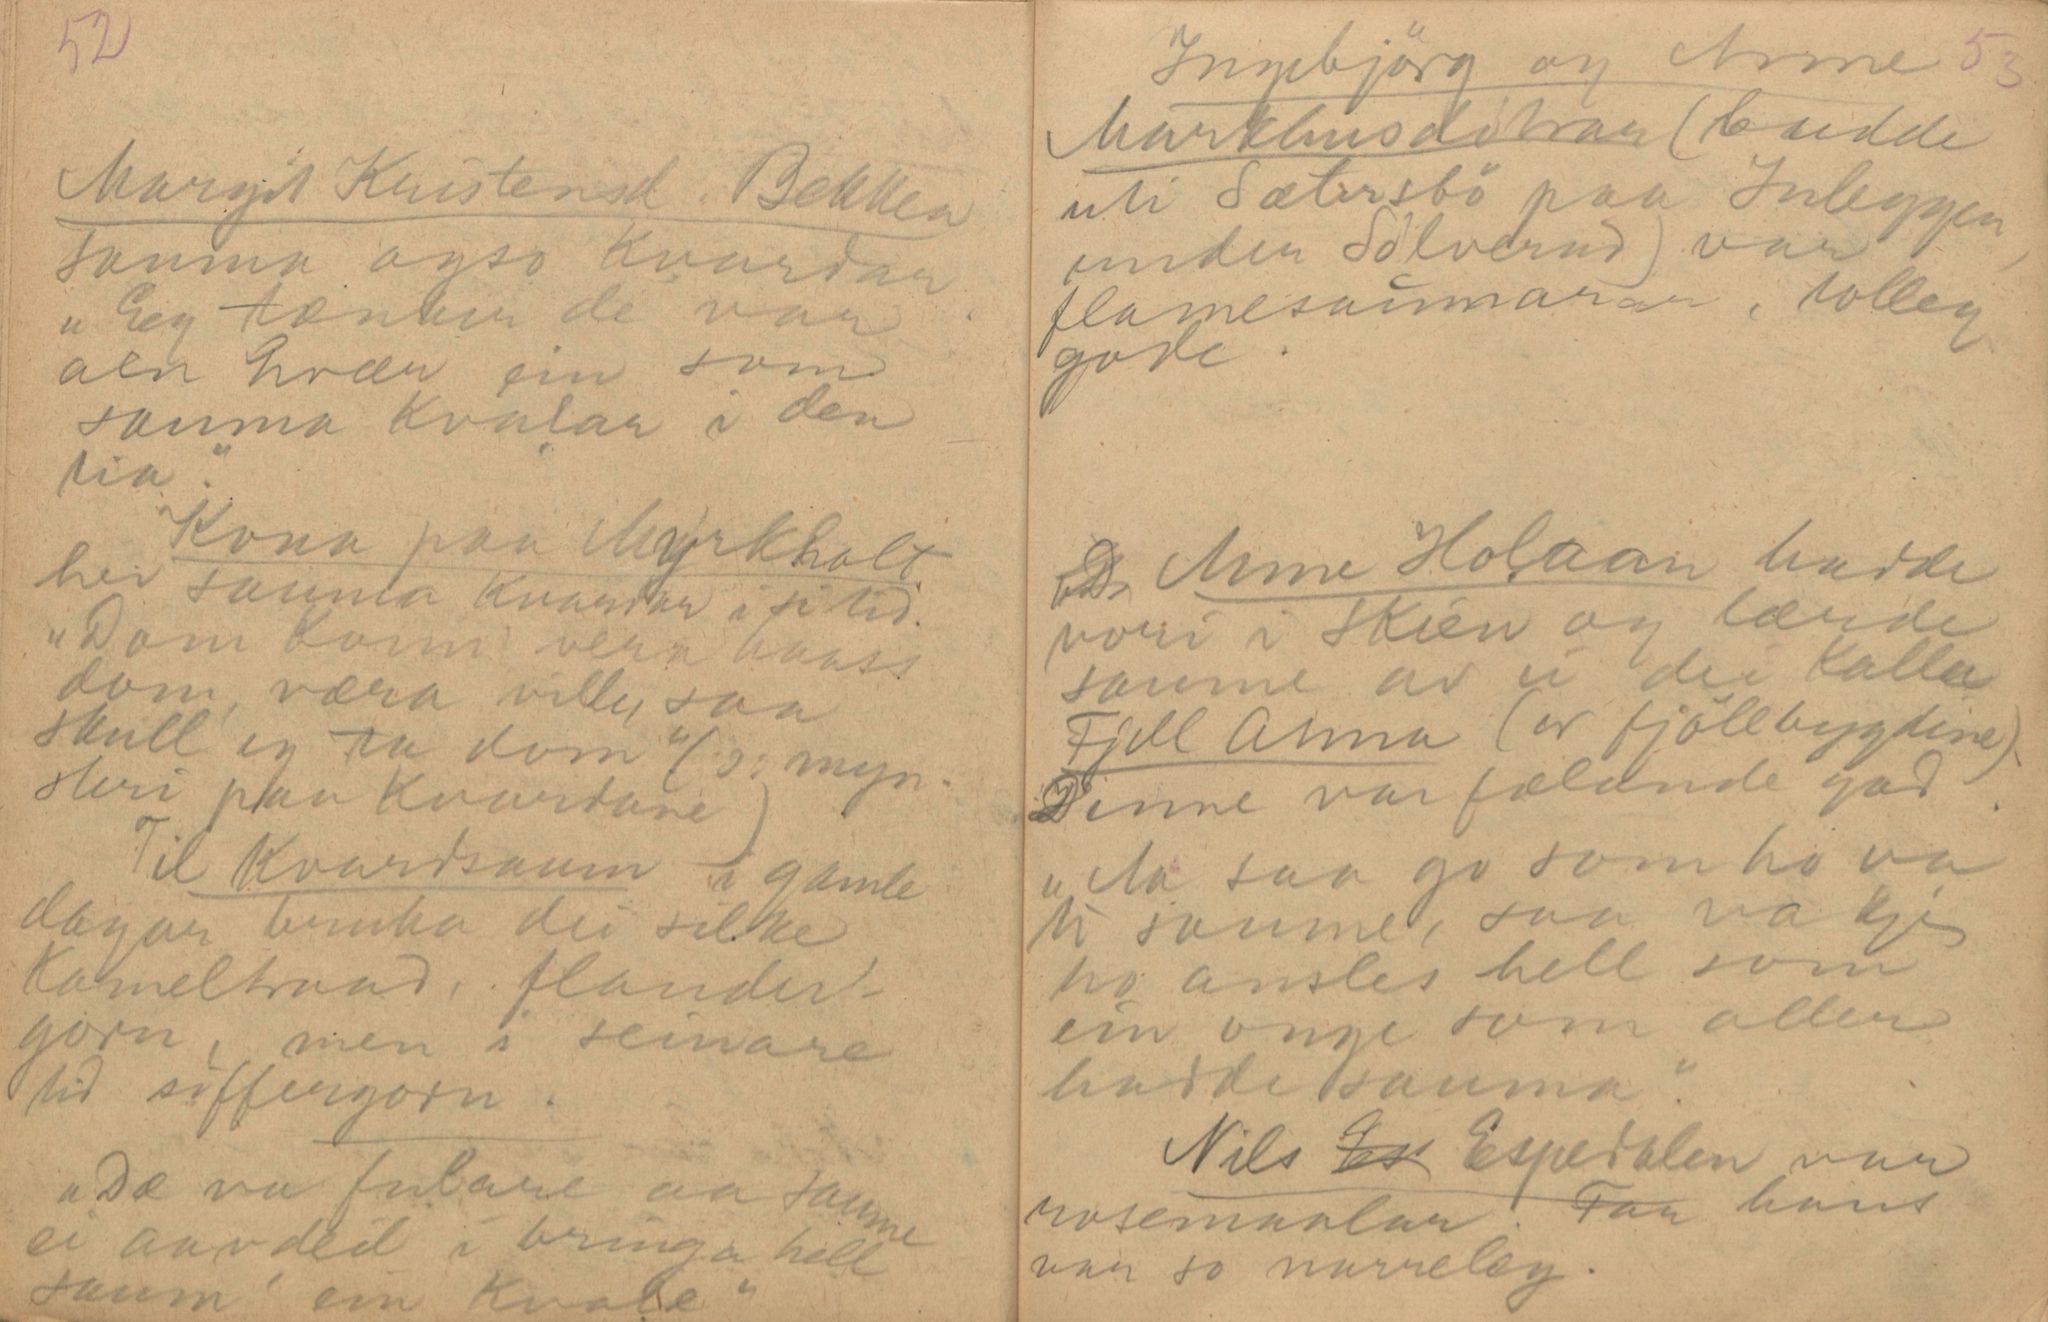 52
Margit Kristensd. Bekken
sauma ogso Kvardar
"Eeg tænker de var
aen hvær ein som
sauma Kvalar i den
tia."
Kona paa Myrkholt
hev sauma Kvardar i si tid.
"Dom kom vera
dom, væra ville, saa
skull eg ta dom" (ɔ: myn-
steri paa Kvardane)
Til Kvardsaum i gamle
dagar bruka dei silke
Kameltraad, flander-
gorn, men i seinare
tid siffergorn.
"Dæ va fulare aa saume
ei aavdeil i bringa hell
saum' ein Kvale"
Ingebjörg og Anne 53
Markhusdötrar (budde
uti Sætersbö paa Inleggen,
under Sölverud) var
flamesaumarar, tolleg
gode.
Anne Holaan hadde
vori i Skien og lærde
saume av ei dei kalla
Fjell Anna (av fjöllbygdine).
Dinne var fælande god.
"Aa saa go som ho va
ti saume, saa va kje
ho ansles hell som
ein onge som aller
hadde sauma."
Nils Es Espedalen var
rosemaalar. Faa hans
var so narreleg.